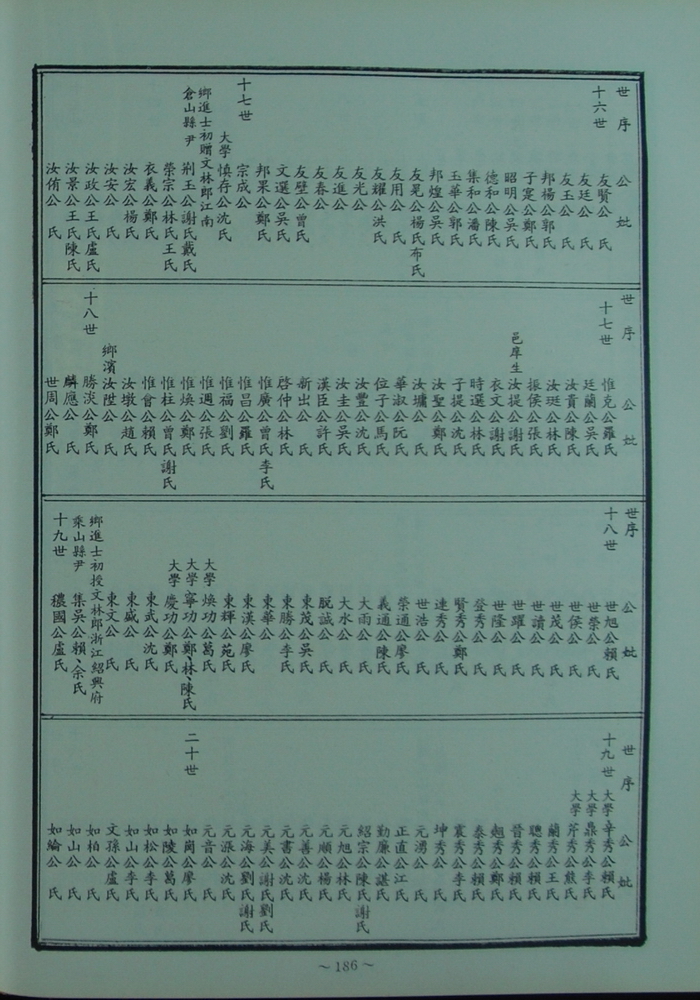 世序　公　妣
十六世
友賢公　氏
友廷公　氏
友玉公　氏
邦楊公郭氏
子寔公鄭氏
昭明公吳氏
德和公陳氏
集和公潘氏
玉華公郭氏
邦煌公吳氏
友晃公楊氏布氏
友用公　氏
友耀公洪氏
友光公
友進公
友春公
友壁公曾氏
文選公吳氏
邦果公鄭氏
十七世
宗成公
大學　慎存公沈氏
鄉進士初贈文林郎江南
倉山縣尹　荊玉公謝氏戴氏
榮宗公林氏王氏
衣義公鄭氏
汝宏公楊氏
汝安公　氏
汝政公王氏盧氏
汝景公王氏陳氏
汝侑公　氏
世序　公　妣
十七世
惟克公羅氏
廷蘭公吳氏
汝貢公陳氏
汝珽公林氏
振侯公張氏
邑庠生　汝提公謝氏
衣文公謝氏
時選公林氏
子提公沈氏
汝聖公鄭氏
汝墉公　氏
華淑公阮氏
位子公馬氏
汝豐公沈氏
汝圭公吳氏
漢臣公許氏
新出公　氏
啓仲公林氏
惟廣公曾氏李氏
惟昌公羅氏
惟福公劉氏
惟週公張氏
惟煥公鄭氏
惟柱公曾氏謝氏
惟僧公賴氏
汝墩公趙氏
鄉濱　汝陞公　氏
十八世
勝淡公鄭氏
麟應公　氏
世周公鄭氏
世序　公　妣
十八世
世旭公賴氏
世榮公　氏
世侯公　氏
世茂公　氏
世讀公　氏
世躍公　氏
世隆公　氏
登秀公　氏
賢秀公鄭氏
達秀公　氏
世浩公　氏
榮通公廖氏
義通公陳氏
大雨公　氏
大水公　氏
脫誠公　氏
東茂公吳氏
東勝公李氏
東華公
東漢公廖氏
東輝公苑氏
大學　煥功公葛氏
大學　寧功公鄭林、陳氏
大學　慶功公鄭氏
東武公沈氏
東威公　氏
東文公　氏
鄉進士初授文林郎浙江紹興府
乘山縣尹　集吳公賴、余氏
十九世
穠國公盧氏
世序　公　妣
十九世
大學　辛秀公賴氏
大學　鼎秀公李氏
大學　芹秀公熊氏
蘭秀公王氏
聰秀公賴氏
晉秀公賴氏
趐秀公鄭氏
泰秀公賴氏
寰秀公李氏
坤秀公　氏
元湧公　氏
正直公江氏
勤廉公諶氏
紹宗公陳氏謝氏
元旭公林氏
元順公楊氏
元善公沈氏
元書公沈氏
元美公謝氏劉氏
元海公劉氏謝氏
元漲公沈氏
元音公　氏
二十世
如崗公廖氏
如陵公葛氏
如松公李氏
如山公李氏
文孫公盧氏
如柏公　氏
如山公　氏
如綸公　氏
～186～